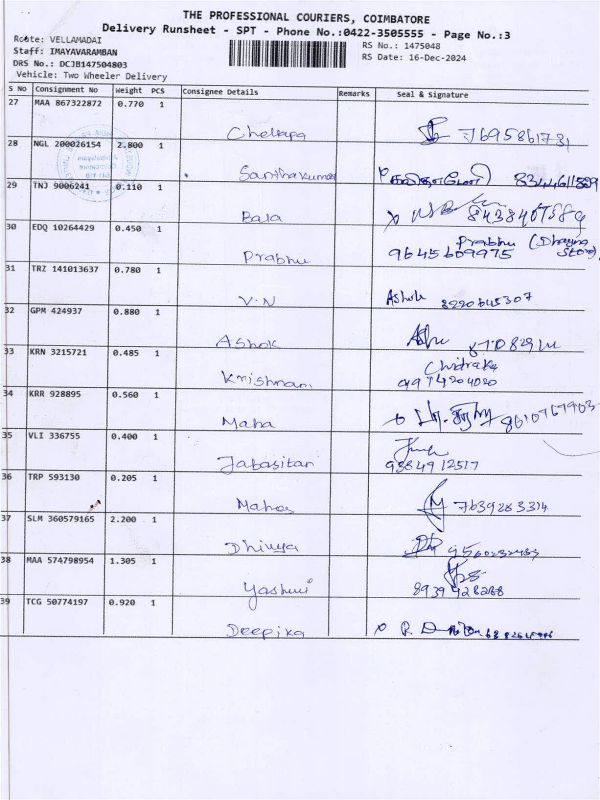 THE PROFESSIONAL COURIERS, COIMBATORE
Delivery Runsheet - SPT - Phone No.:0422-3505555 - Page No.:3
Route: VELLAMADAI
RS No.: 1475048
Staff: IMAYAVARAMBAN
RS Date: 16-Dec-2024
DRS No.: DCJB147504803
Vehicle: Two Wheeler Delivery
S No Consignment No Weight PCS Consignee Details Remarks Seal & Signature
27 MAA 867322872 0.770 1
Chellapa 7695861731
28 NGL 200026154 2.800 1
Santhakumar 8344611589
29 TNJ 9006241 0.110 1
Bala
30 EDQ 10264429 0.450 1
Prabhu (Dharma Store)
Prabhu 9645609975
31 TRZ 141013637 0.780 1
V.N Ashok 8220645307
32 GPM 424937 0.880 1
Ashok
33 KRN 3215721 0.485 1
Krishnan 9974204020
34 KRR 928895 0.560 1
Maha 8610767903
35 VLI 336755 0.400 1
Jabasitan 9384912517
36 TRP 593130 0.205 1
Mahoa 7639283314
37 SLM 360579165 2.200 1
Dhivya
38 MAA 574798954 1.305 1
Yashwi 8939428288
39 TCG 50774197 0.920 1
Deepika